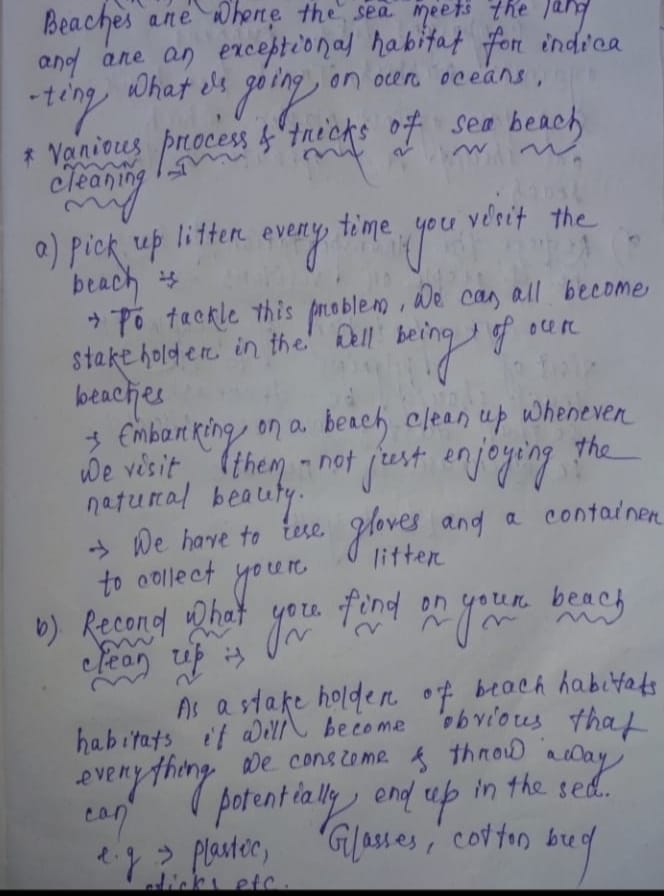 Beaches are where the sea meets the land
and are an exceptional habitat for indica
-ting what is going on our oceans.
* Various process & tricks of sea beach
cleaning :→
a) Pick up litter every time you visit the
beach :→
→ To tackle this problem, We can all become
stake holder in the well being of our
beaches
→ Embarking on a beach clean up whenever
We visit them - not just enjoying the
natural beauty.
→ We have to use gloves and a container
to collect your litter
b) Record what you find on your beach
clean up :→
As a stake holder of beach habitats
habitats it will become obvious that
everything we consume & throw away
can potentially end up in the sea.
e.g → plastic, Glasses, cotton bud
sticks etc.